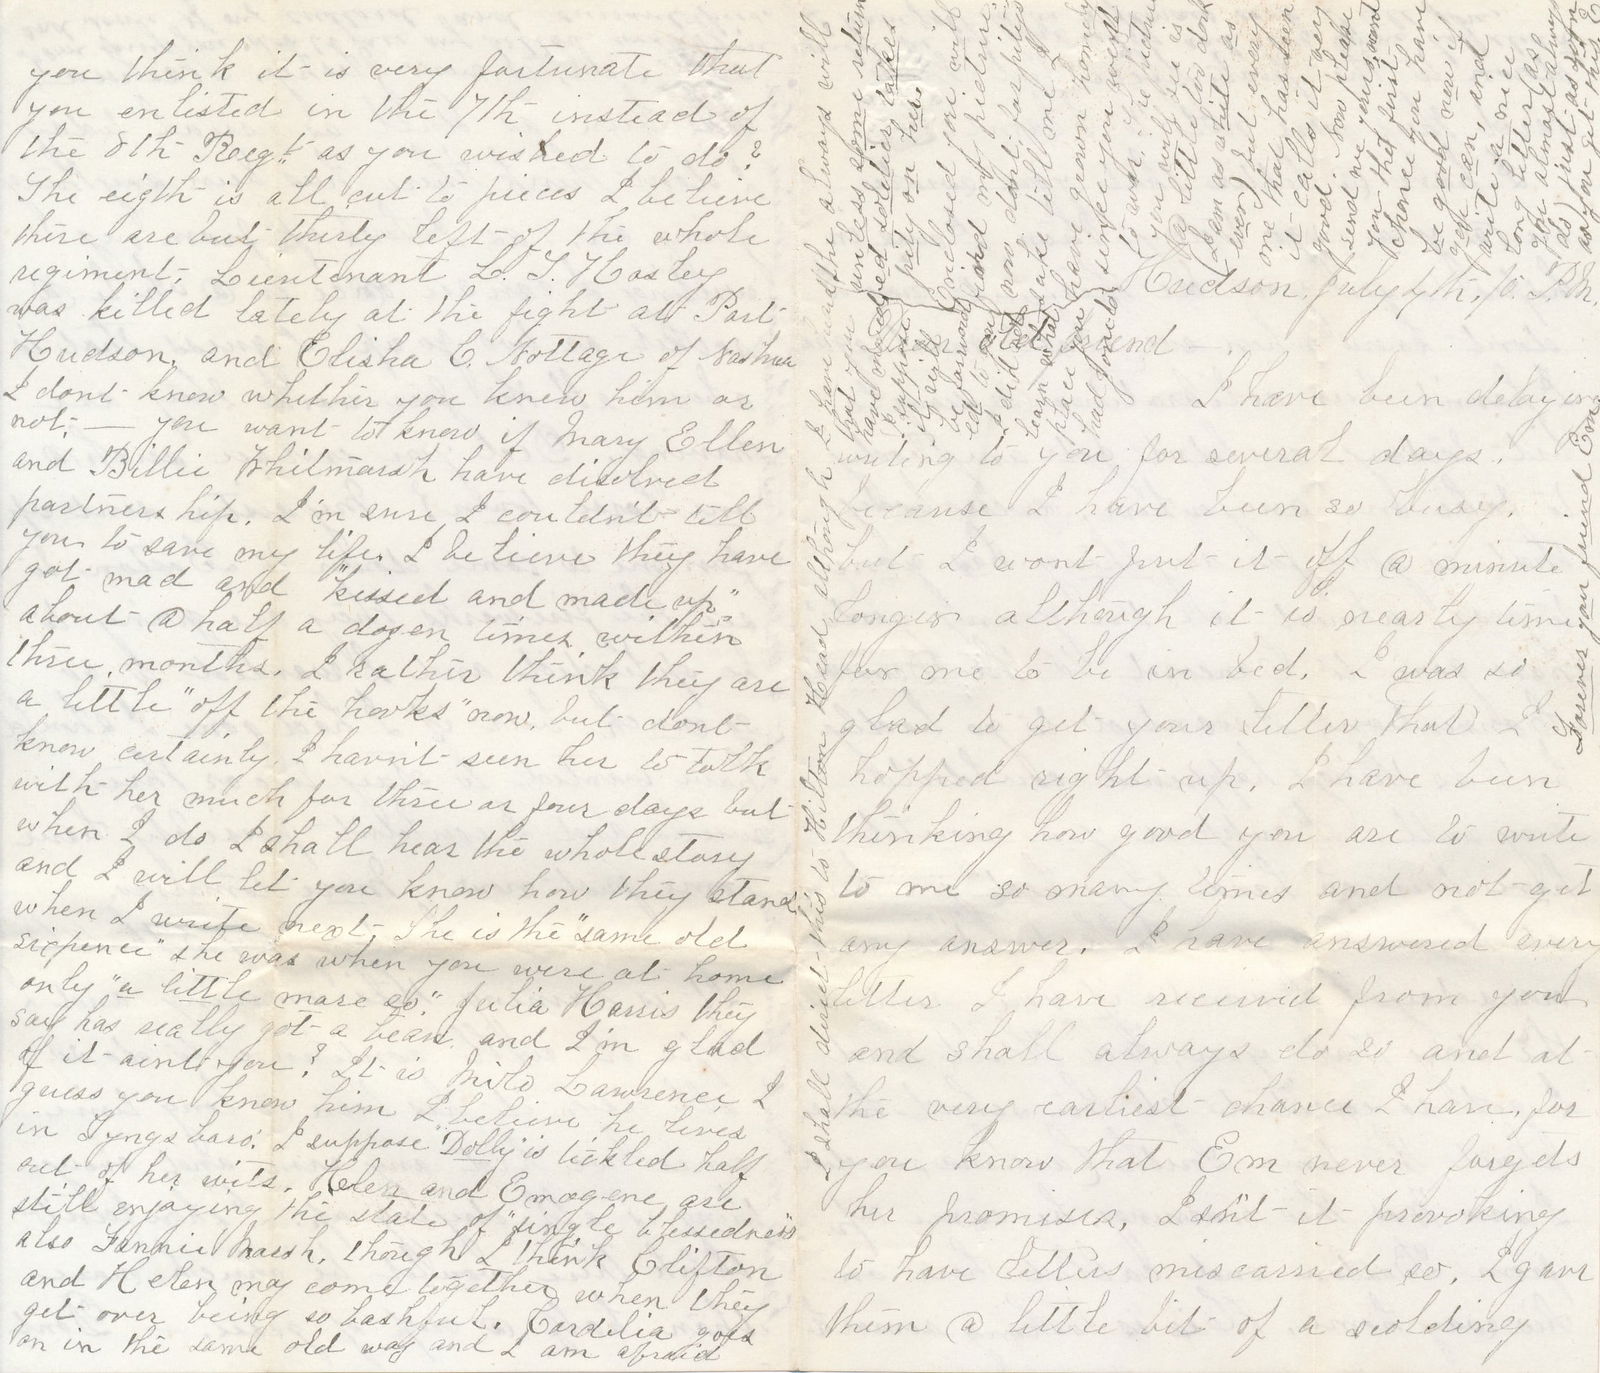 Hudson, July 4th, 10. P.M.
friend —
I have been delaying
writing to you for several days,
because I have been so busy,
but I wont put it off @ minute
longer although it is nearly time
for me to be in bed. I was so
glad to get your letter that I
hopped right up. I have been
thinking how good you are to write
to me so many times and not get
any answer. I have answered every
letter I have received from you
and shall always do so and at
the very earliest chance I have, for
you know that Em never forgets
her promises. Isn't it provoking
to have letters miscarried so. I gave
them @ little bit of a scolding
you think it is very fortunate that
you enlisted in the 7th instead of
the 8th Regt. as you wished to do?
The eigth is all cut to pieces I believe
there are but thirty left of the whole
regiment, Lieutenant L. T. Hosley
was killed lately at the fight at Port
Hudson, and Elisha C. Nottage of Nashua
I dont know whether you knew him or
not; — you want to know if Mary Ellen
and Billie Whitmarsh have disolved
partnership. I'm sure I couldn't tell
you to save my life. I believe they have
got mad and "kissed and made up"
about @ half a dozen times within
three months. I rather think they are
a little "off the hooks" now, but dont
know certainly. I havn't seen her to talk
with her much for three or four days but
when I do I shall hear the whole story
and I will let you know how they stand
when I write next. She is the "same old
sixpence" she was when you were at home
only "a little more so." Julia Harris they
say has really got a beau, and I'm glad
of it aint you? It is Milo Lawrence I
guess you know him I believe he lives
in Tyngsboro'. I suppose "Dolly" is tickled half
out of her wits. Helen and Emogene are
still enjoying the state of "single blessedness"
also Fannie Marsh, though I think Clifton
and Helen may come together when they
get over being so bashful. Cordelia goes
on in the same old way and I am afraid
I shall direct this to Hilton Head although
I have
always will
unless some return
have
soldier takes
pity on her.
Inclosed you will
find my picture.
now dont for pitys
sake tell me I
have grown homely
since you went
to war. The picture
you will see is
@ little too dark
(I am as white as
ever) but every
one that has seen
it calls it very
good. Now please
send me yours wont
you the first
chance you have
be good now if
you can, and
write a nice
long letter (as
you almost always
do) just as soon
as you get this. E
Forever your friend Em